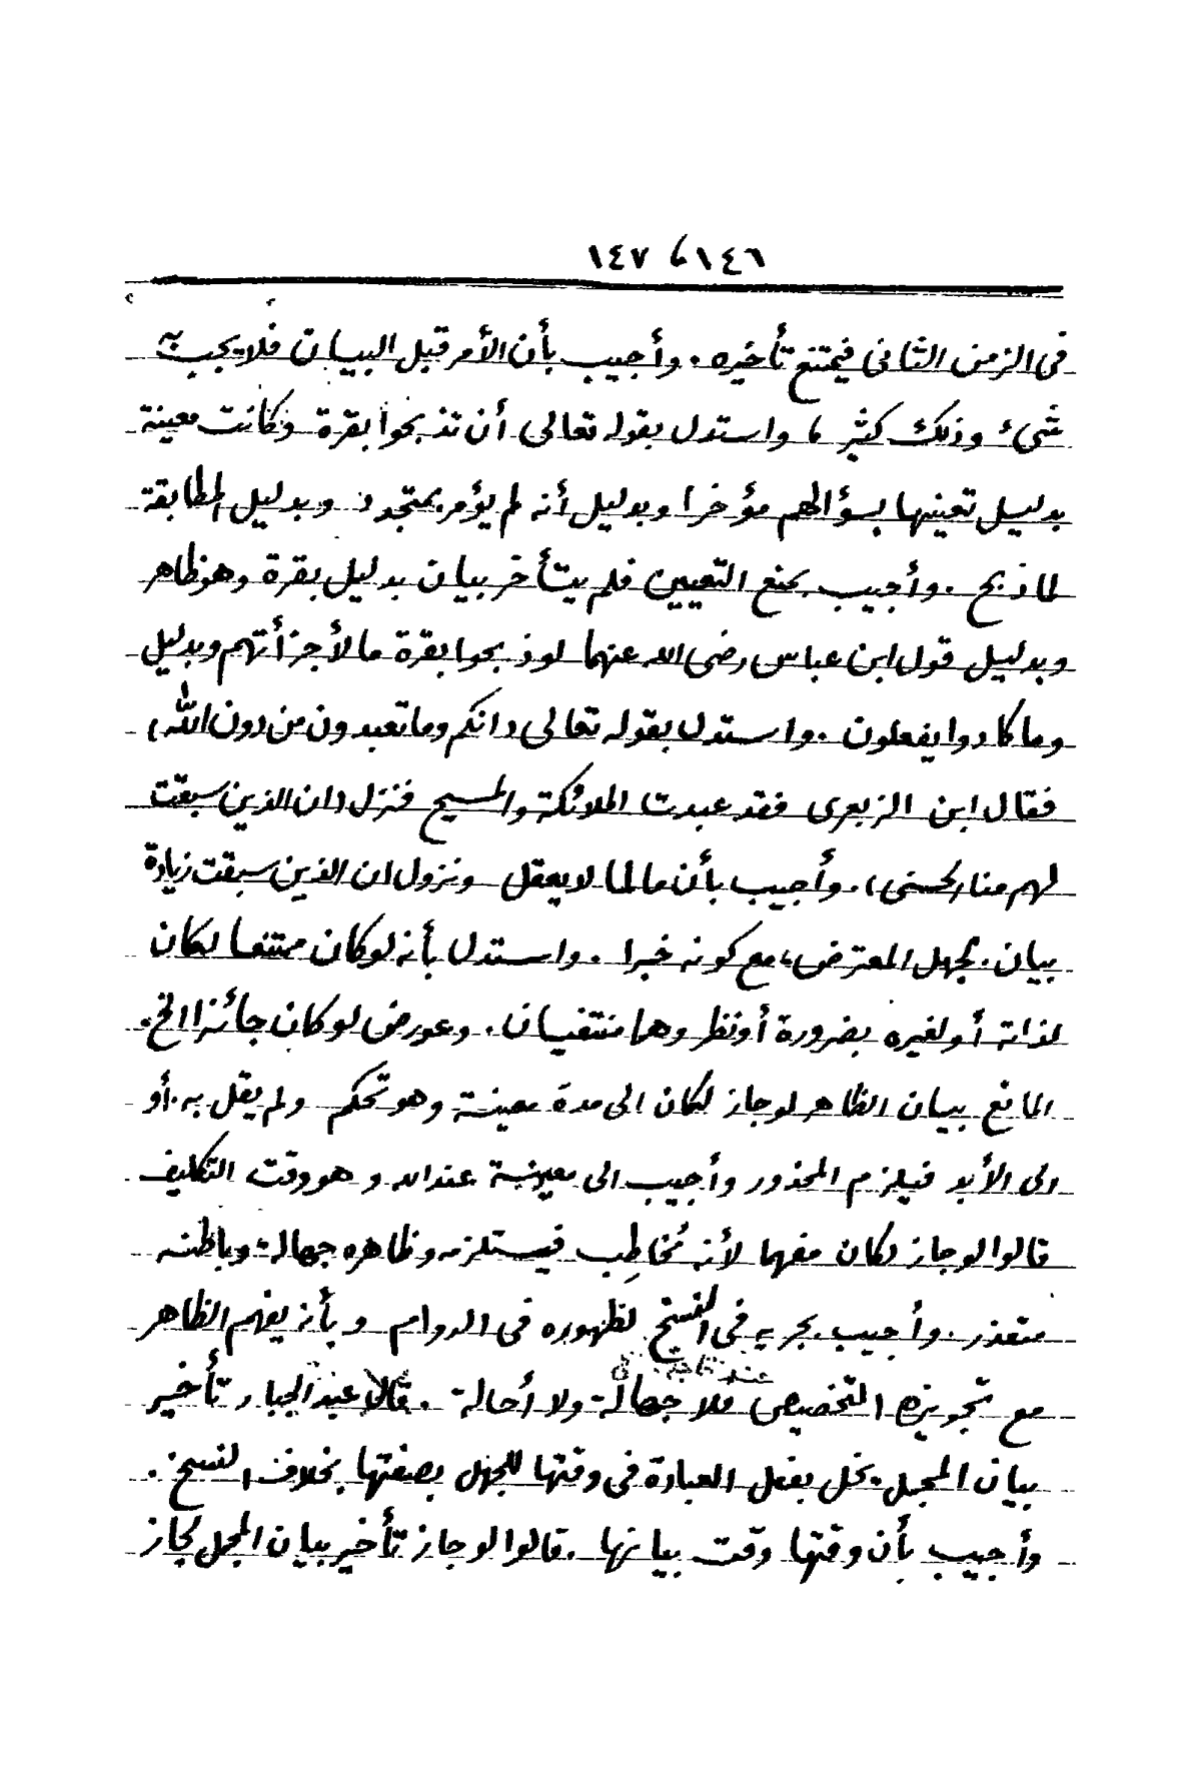 ١٤٦ ، ١٤٧
فى الزمن الثانى فيمتنع تأخيره . وأجيب بأن الأمر قبل البيان فلا يجب به
شىء وذلك كثير ، واستدل بقوله تعالى أن تذبحوا بقرة وكانت معينة
بدليل تعينها بسؤالهم مؤخرا وبدليل أنه لم يؤمر بمتجدد وبدليل المطابقة
لما ذبح . وأجيب بمنع التعيين فلم يتأخر بيان بدليل بقرة وهو ظاهر
وبدليل قول ابن عباس رضى الله عنهما لو ذبحوا بقرة ما لأجزأتهم وبدليل
وما كادوا يفعلون . واستدل بقوله تعالى (انكم وما تعبدون من دون الله)
فقال ابن الزبعرى فقد عبدت الملائكة والمسيح فنزل (ان الذين سبقت
لهم منا الحسنى) . وأجيب بأن ما لما لا يعقل ونزول ان الذين سبقت زيادة
بيان لجهل المعترض ، مع كونه خبرا . واستدل بأنه لو كان ممتنعا لكان
لذاته أو لغيره بضرورة أو نظر وهما منتفيان . وعورض لو كان جائزا الخ .
المانع بيان الظاهر لو جاز لكان الى مدة معينة وهو تحكم ولم يقل به . أو
الى الأبد فيلزم المحذور وأجيب الى معينة عند الله وهو وقت التكليف
قالوا لو جاز لكان مفهما لأنه مُخاطِب فيستلزمه وظاهره جهالة وباطنه
متعذر . وأجيب بجريه فى النسخ لظهوره فى الدوام وبأنه يفهم الظاهر
مع تجويزه التخصيص فلا جهالة ولا أحالة . قال عبد الجبار تأخير
بيان المجمل يخل بفعل العبادة فى وقتها للجهل بصفتها بخلاف النسخ .
وأجيب بأن وقتها وقت بيانها . قالوا لو جاز تأخير بيان المجمل لجاز